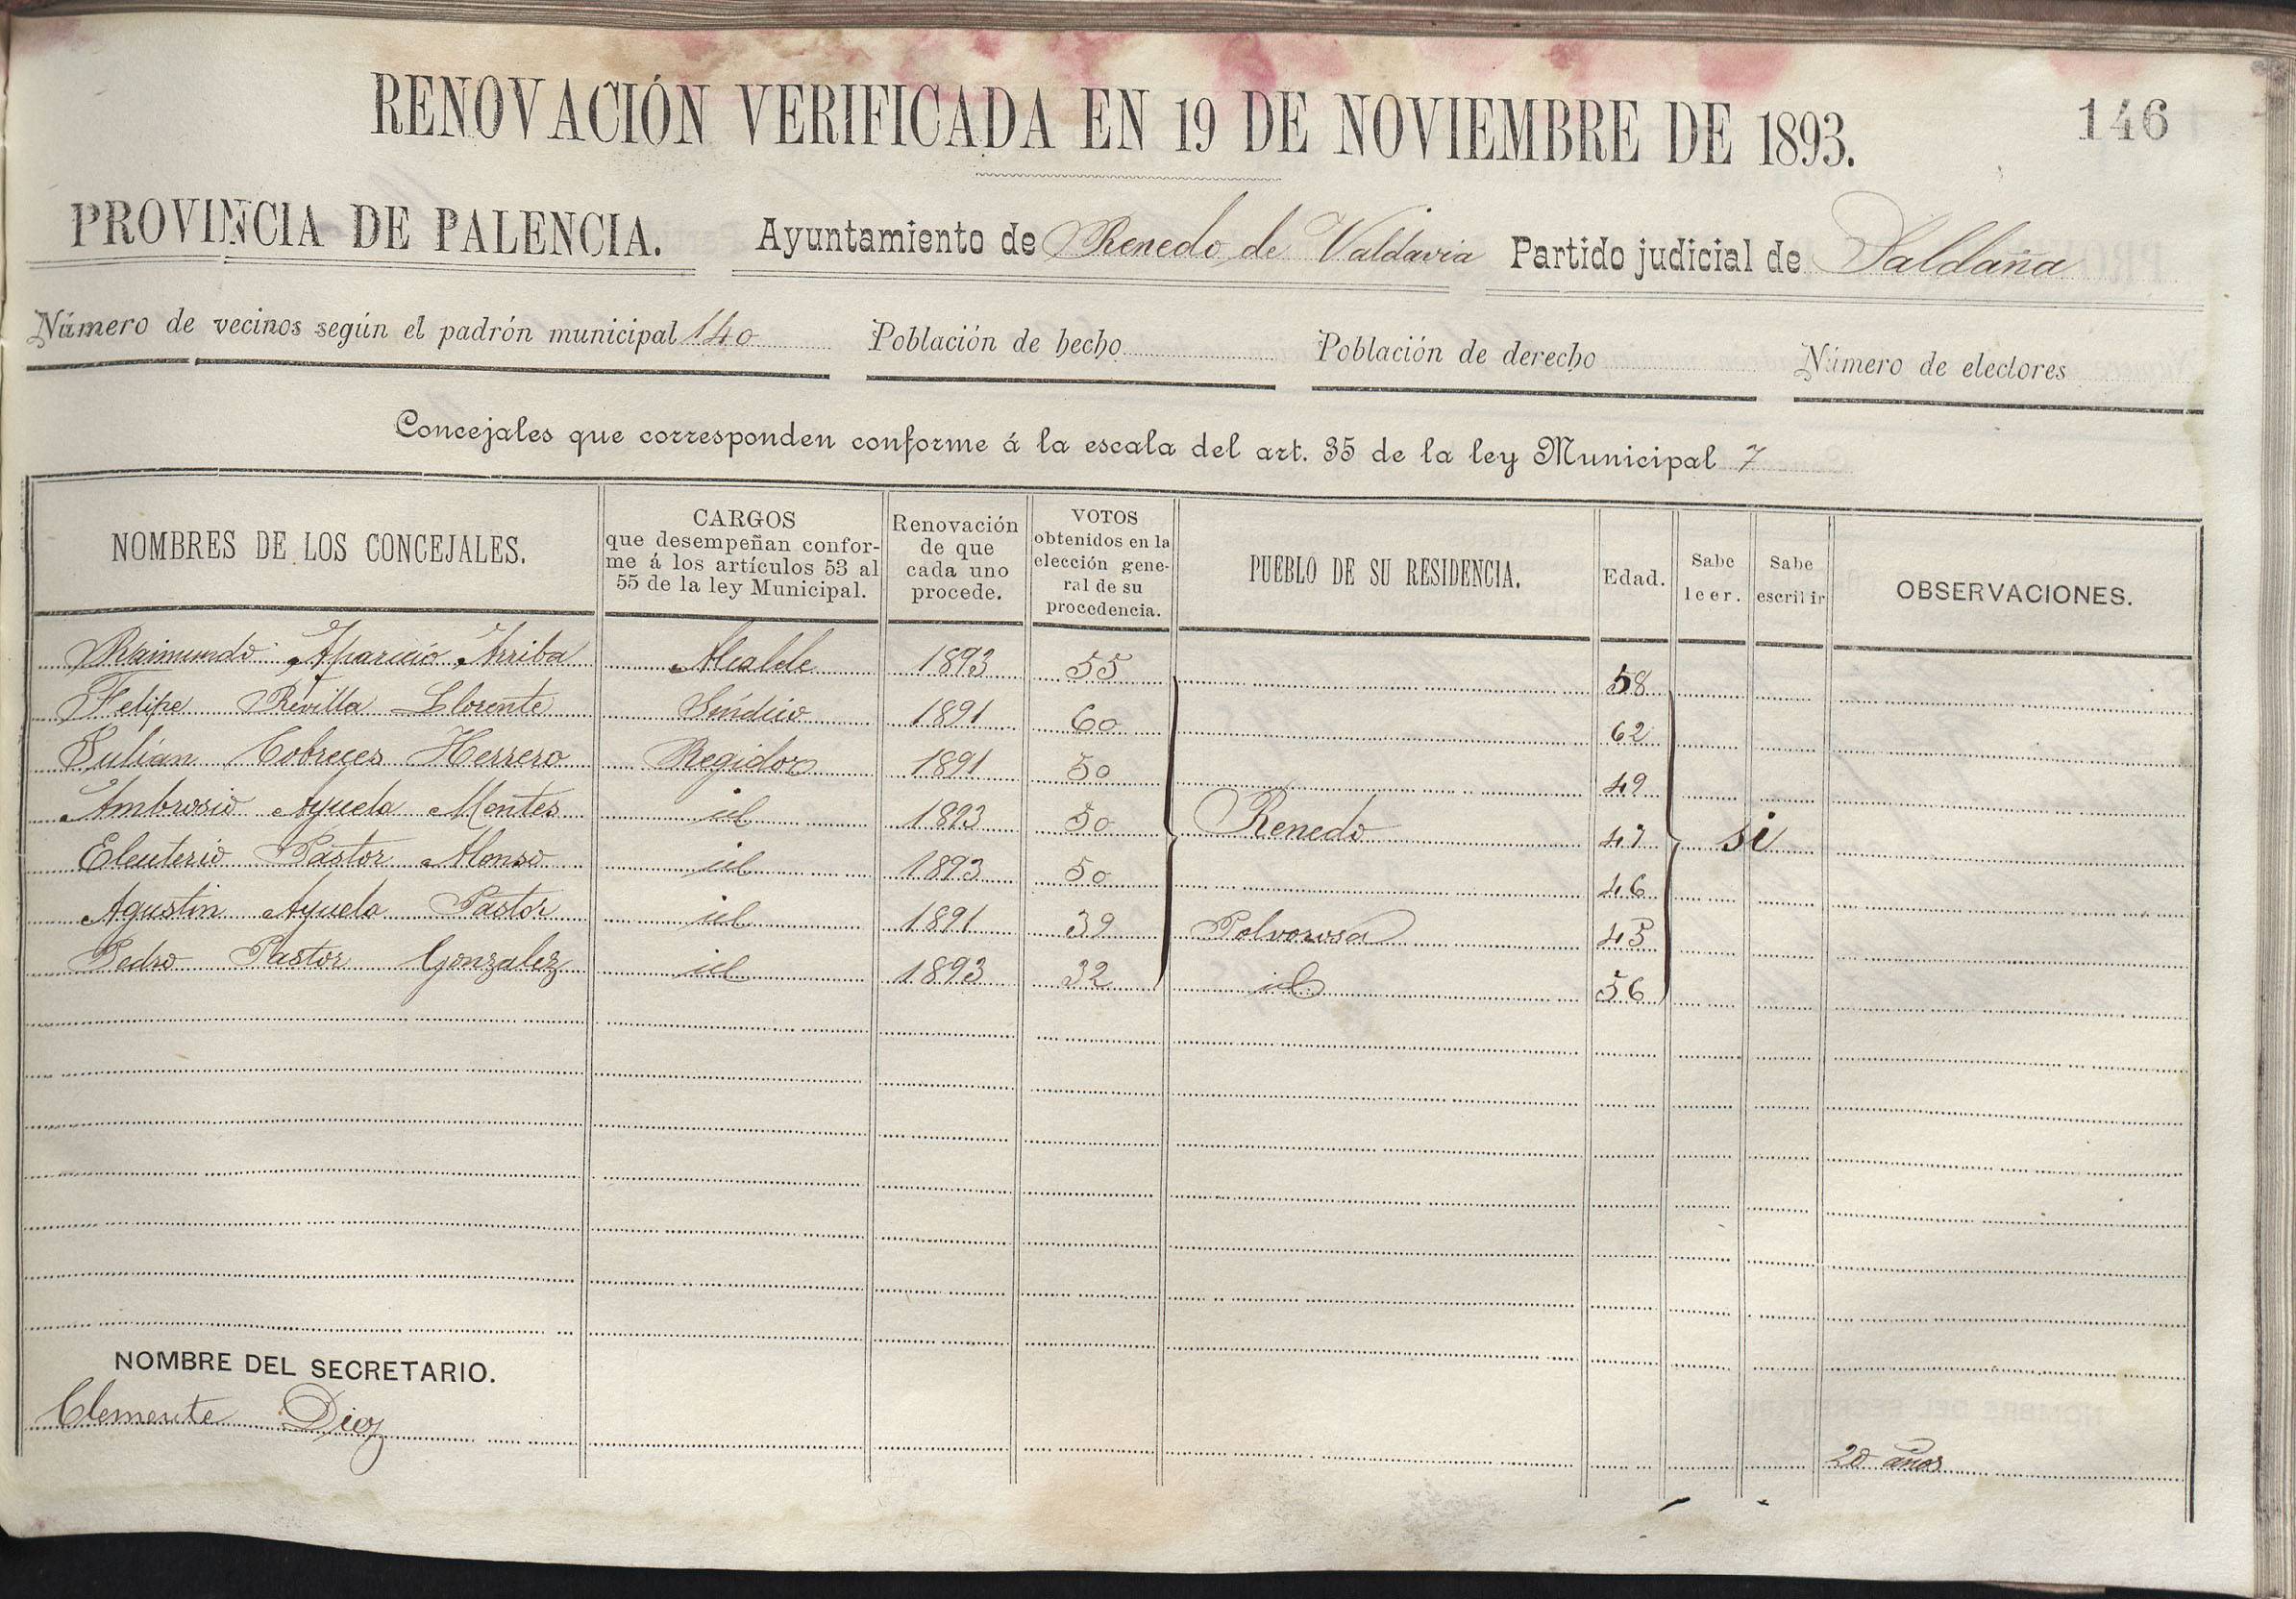 RENOVACIÓN VERIFICADA EN 19 DE NOVIEMBRE DE 1893.
146
PROVINCIA DE PALENCIA. Ayuntamiento de Renedo de Valdavia Partido judicial de Saldaña
Número de vecinos según el padrón municipal 140 Población de hecho Población de derecho Número de electores
Concejales que corresponden conforme á la escala del art. 35 de la ley Municipal 7
NOMBRES DE LOS CONCEJALES.
CARGOS
que desempeñan confor-
me á los artículos 53 al
55 de la ley Municipal.
Renovación
de que
cada uno
procede.
VOTOS
obtenidos en la
elección gene-
ral de su
procedencia.
PUEBLO DE SU RESIDENCIA.
Edad.
Sabe
leer.
Sabe
escribir
OBSERVACIONES.
Raimundo Aparicio Arriba Alcalde 1893 55 58
Felipe Revilla Llorente Síndico 1891 60 62
Julián Cobreces Herrero Regidor 1891 50 49
Ambrosio Ayuela Montes id 1893 50 Renedo 47 si
Eleuterio Pastor Alonso id 1893 50 46
Agustin Ayuela Pastor id 1891 39 Polvorosa 45
Pedro Pastor Gonzalez id 1893 32 id 56
NOMBRE DEL SECRETARIO.
Clemente Diez 20 años